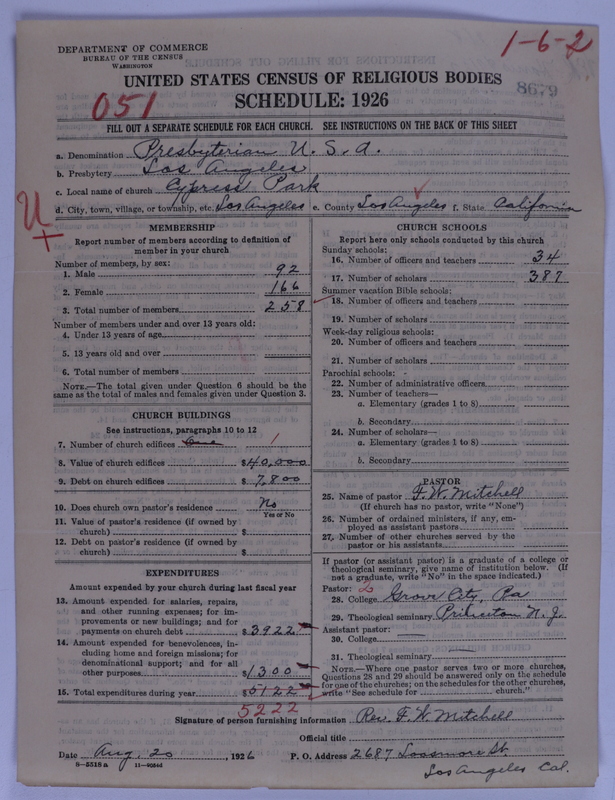 DEPARTMENT OF COMMERCE
BUREAU OF THE CENSUS
WASHINGTON
1-6-2
UNITED STATES CENSUS OF RELIGIOUS BODIES
8679
051
SCHEDULE: 1926
FILL OUT A SEPARATE SCHEDULE FOR EACH CHURCH. SEE INSTRUCTIONS ON THE BACK OF THIS SHEET
a. Denomination Presbyterian U. S. A.
b. Presbytery Los Angeles
c. Local name of church Cypress Park
d. City, town, village, or township, etc. Los Angeles e. County Los Angeles f. State California
U
MEMBERSHIP
Report number of members according to definition of
member in your church
Number of members, by sex:
1. Male 92
2. Female 166
3. Total number of members 258
Number of members under and over 13 years old:
4. Under 13 years of age
5. 13 years old and over
6. Total number of members
NOTE.—The total given under Question 6 should be the
same as the total of males and females given under Question 3.
CHURCH BUILDINGS
See instructions, paragraphs 10 to 12
7. Number of church edifices One 1
8. Value of church edifices $40,000
9. Debt on church edifices $7,800
10. Does church own pastor's residence No
Yes or No
11. Value of pastor's residence (if owned by
church) $
12. Debt on pastor's residence (if owned by
church) $
EXPENDITURES
Amount expended by your church during last fiscal year
13. Amount expended for salaries, repairs,
and other running expenses; for im-
provements or new buildings; and for
payments on church debt $3922
14. Amount expended for benevolences, in-
cluding home and foreign missions; for
denominational support; and for all
other purposes $1300
15. Total expenditures during year $5122
5222
CHURCH SCHOOLS
Report here only schools conducted by this church
Sunday schools:
16. Number of officers and teachers 34
17. Number of scholars 387
Summer vacation Bible schools:
18. Number of officers and teachers
19. Number of scholars
Week-day religious schools:
20. Number of officers and teachers
21. Number of scholars
Parochial schools:
22. Number of administrative officers
23. Number of teachers—
a. Elementary (grades 1 to 8)
b. Secondary
24. Number of scholars—
a. Elementary (grades 1 to 8)
b. Secondary
PASTOR
25. Name of pastor F. W. Mitchell
(If church has no pastor, write "None")
26. Number of ordained ministers, if any, em-
ployed as assistant pastors
27. Number of other churches served by the
pastor or his assistants
If pastor (or assistant pastor) is a graduate of a college or
theological seminary, give name of institution below. (If
not a graduate, write "No" in the space indicated.)
Pastor: 2
28. College Grove City, Pa
29. Theological seminary Princeton N. J.
Assistant pastor:
30. College
31. Theological seminary
NOTE.—Where one pastor serves two or more churches,
Questions 28 and 29 should be answered only on the schedule
for one of the churches; on the schedules for the other churches,
write "See schedule for church."
Signature of person furnishing information Rev. F. W. Mitchell
Official title
Date Aug. 20, 1926 P. O. Address 2687 Lossmore St.
8-5518 a
Los Angeles Cal.